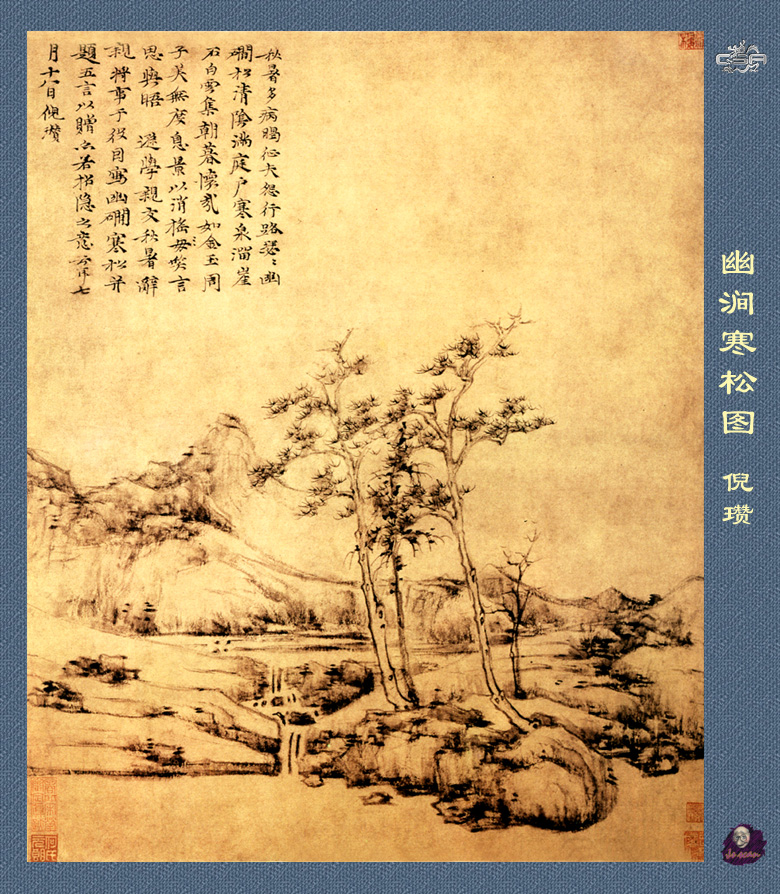 秋暑多病暍征夫怨行路瑟瑟幽
礀松清陰滿庭戶寒泉溜崖
石白雲集朝暮懷哉如金玉周
子美無度息景以消搖毋嗟言
思與晤 遜學親友秋暑辭
親將事于役因寫幽礀寒松并
題五言以贈亦若招隱之意云耳七
月十八日倪瓚
幽涧寒松图
倪瓒